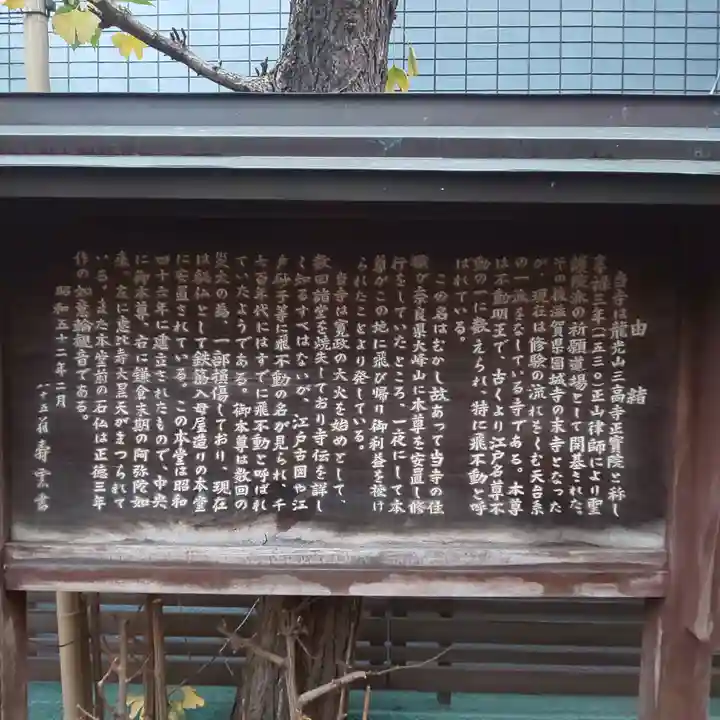 由緒
当寺は龍光山三高寺正寳院と称し
享禄三年(一五三〇)正山律師により聖
護院派の祈願道場として開基された。
その後滋賀県園城寺の末寺となった
が、現在は修験の流れをくむ天台系
の一派をなしている寺である。本尊
は不動明王で、古くより江戸名尊不
動の一に数えられ、特に飛不動と呼
ばれている。
この名はむかし故あって当寺の住
職が奈良県大峰山に本尊を安置し修
行をしていたところ、一夜にして本
尊がこの地に飛び帰り御利益を授け
られたことより発している。
当寺は寛政の大火を始めとして、
数回諸堂を焼失しており寺伝を詳し
く知るすべはないが、江戸古図や江
戸砂子等に飛不動の名が見られ、千
七百年代にはすでに飛不動と呼ばれ
ていたようである。御本尊は数回の
災火の為、一部損傷しており、現在
は秘仏として鉄筋入母屋造りの本堂
に安置されている。この本堂は昭和
四十六年に建立されたもので、中央
に御本尊、右に鎌倉末期の阿弥陀如
来、左に恵比寿大黒天がまつられて
いる。また本堂前の石仏は正徳三年
作の如意輪観音である。
昭和五十二年二月
寿雲書